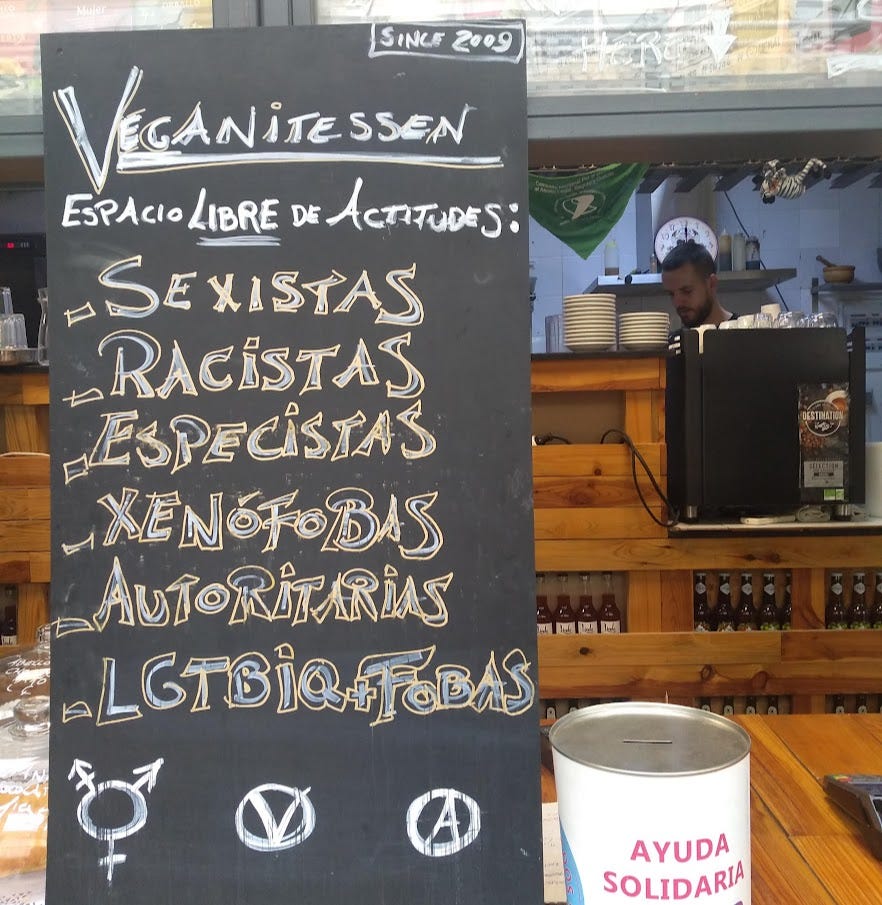 Mujer
SINCE 2009
VEGANITESSEN
ESPACIO LIBRE DE ACTITUDES:
- SEXISTAS
- RACISTAS
- ESPECISTAS
- XENÓFOBAS
- AUTORITARIAS
- LGTBIQ+FOBAS
V
A
DESTINATION
SÉLECTION
AYUDA
SOLIDARIA